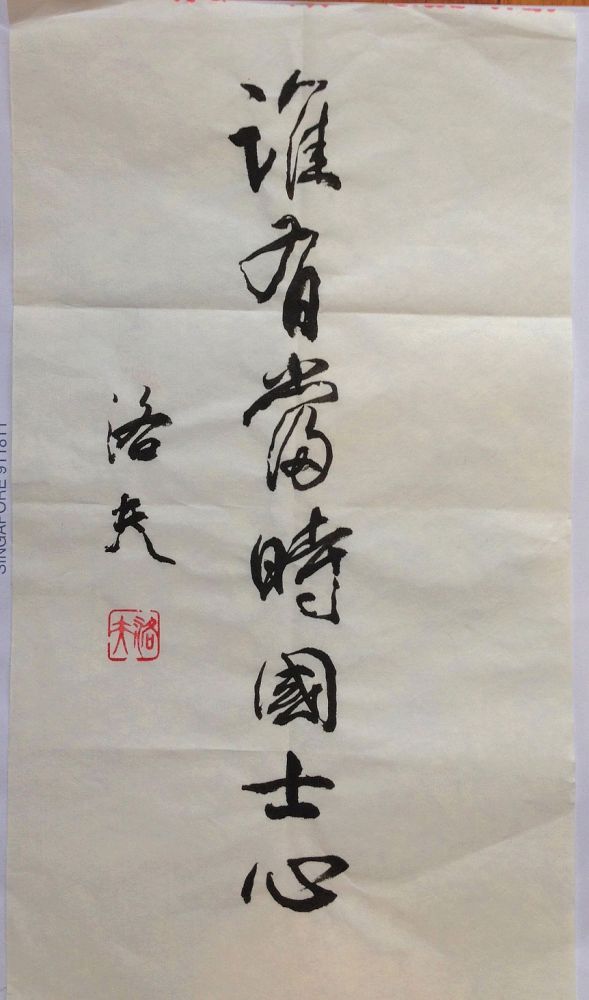 誰有當時國士心
洛夫
洛夫
SINGAPORE 911811